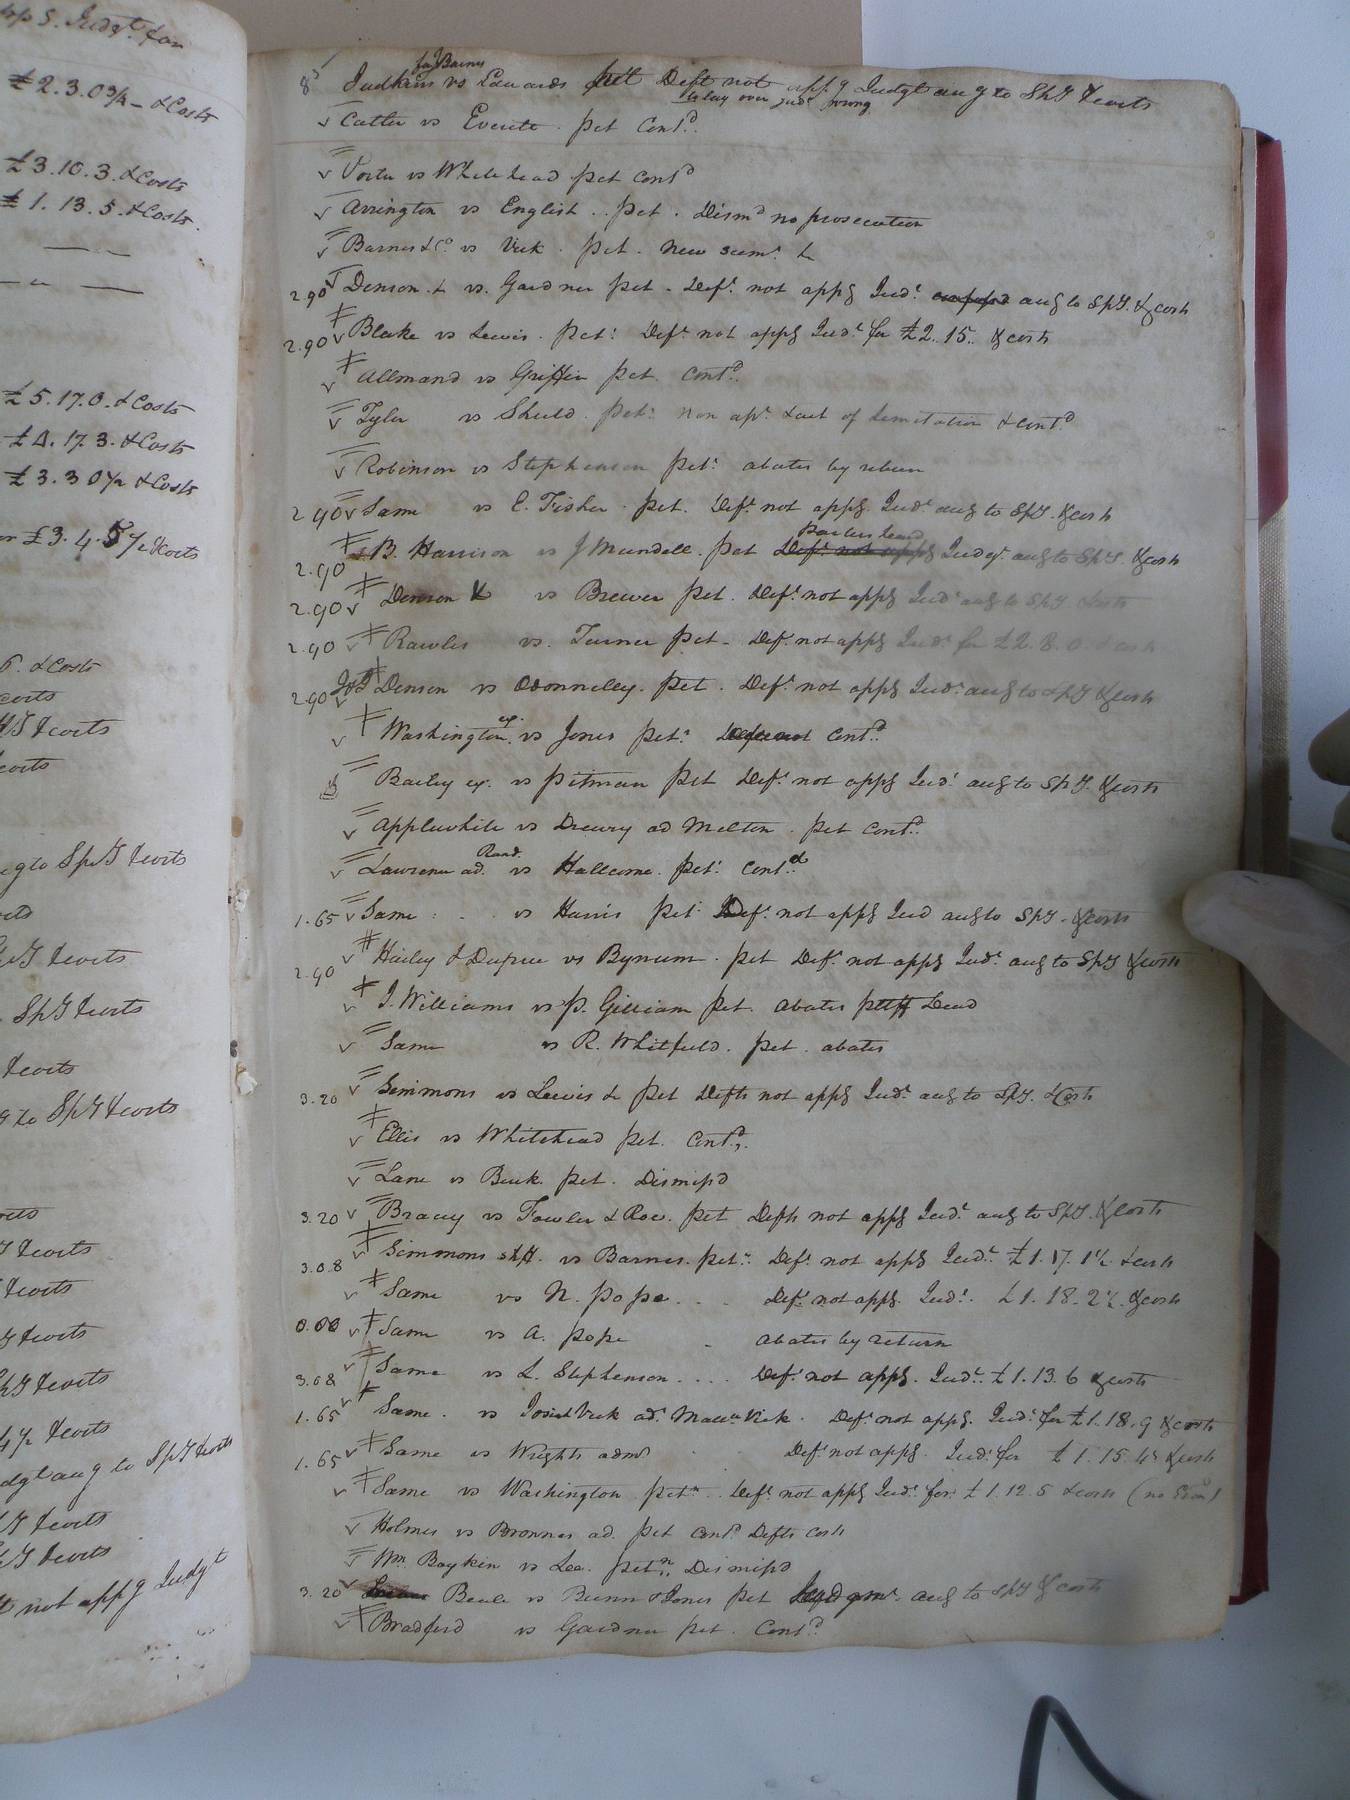 pp S. Judgt. for
£2.3.0¾ - & Costs
£3.10.3. & Costs
£1.13.5. & Costs.
£5.17.0. & Costs
£4.17.3. & Costs
£3.3.0½ & Costs
£3.4.5½ & Costs
& Costs
costs
SpS & costs
costs
ag to SpS & costs
SpS & costs
SpS & costs
& costs
ag to SpS & costs
& costs
dgt aug to SpS & costs
t not appg Judgt
for J Barnes
8 Judkins vs Edwards pet Deft not appg Judgt aug to SpS & costs
to lay over Judt wrong
Catter vs Everite. pet Contd.
Porter vs Whitehead pet Contd
Arrington vs English.. pet. Dismd no prosecution
Barnes & Co vs Vick. pet. New sum.
2.90 Denson & vs. Gardner pet - Deft. not appg Judt. aug to SpS. & costs
2.90 Blake vs Lewis. pet: Deft not appg Judt for £2.15.. & costs
Allmand vs Griffin pet. Contd.
Tyler vs Sheild. pet: non apr. & act of limitation & contd
Robinson vs Stephenson pet: abates by return
2.90 Same vs E. Fisher. pet. Deft. not appg. Judt. aug to SpS. & costs
parties heard
2.90 B. Harrison vs J Mundell. pet Deft. not appg Judgt. aug to SpS. & costs
2.90 Denson & vs Brewer pet. Deft. not appg Judt aug to SpS & costs
2.90 Rawles vs. Turner pet - Deft. not appg Judt for £2.8.0. & costs
2.90 Denson vs Odonneley. pet. Deft. not appg Judt. aug to SpS & costs
Washington ex. vs Jones pet: Contd.
Bailey ex. vs pitman pet Deft. not appg Judt aug to SpS. & costs
Applewhite vs Drewry ad Melton. pet Contd.
Rand.
Lawrence ad. vs Hallcome. pet: Contd.
1.65 Same . . vs Harris pet. Deft. not appg Jud aug to SpS - & costs
2.90 Hailey & Dupree vs Bynum. pet Deft. not appg Judt. aug to SpS & costs
J. Williams vs P. Gilliam pet. abates pltff Dead
Same vs R. Whitfield. pet. abates
3.20 Simmons vs Lewis & pet Defts not appg Judt. aug to SpS. & Costs
Ellis vs Whitehead pet. Contd.
Lane vs Beek. pet. Dismissd
3.20 Bracey vs Fowler & Roe. pet Defts not appg Judt. aug to SpS. & Costs
3.08 Simmons vs Barnes. petn. Deft. not appg Judt. £1.17.1½ & costs
Same vs N. pope... Deft. not appg. Judt. £1.18.2½. & costs
0.00 Same vs A. pope . abates by return
3.08 Same vs L. Stephenson.... Deft. not appg. Judt. £1.13.6 & costs
1.65 Same. vs Josiah Vick ad. Vick. Deft. not appg. Judt. for £1.18.9 & costs
1.65 Same vs Wrights admr Deft not appg. Judt for £1.15.4½ & costs
Same vs Washington petn. Deft. not appg Judt. for. £1.12.5 & costs
Holmes vs Browns ad. pet Contd Defts costs
Wm. Boykin vs Lee. petn. Dismissd
3.20 Beale vs Bunn & Jones pet aug to SpS & costs
Bradford vs Gardner pet. Contd.